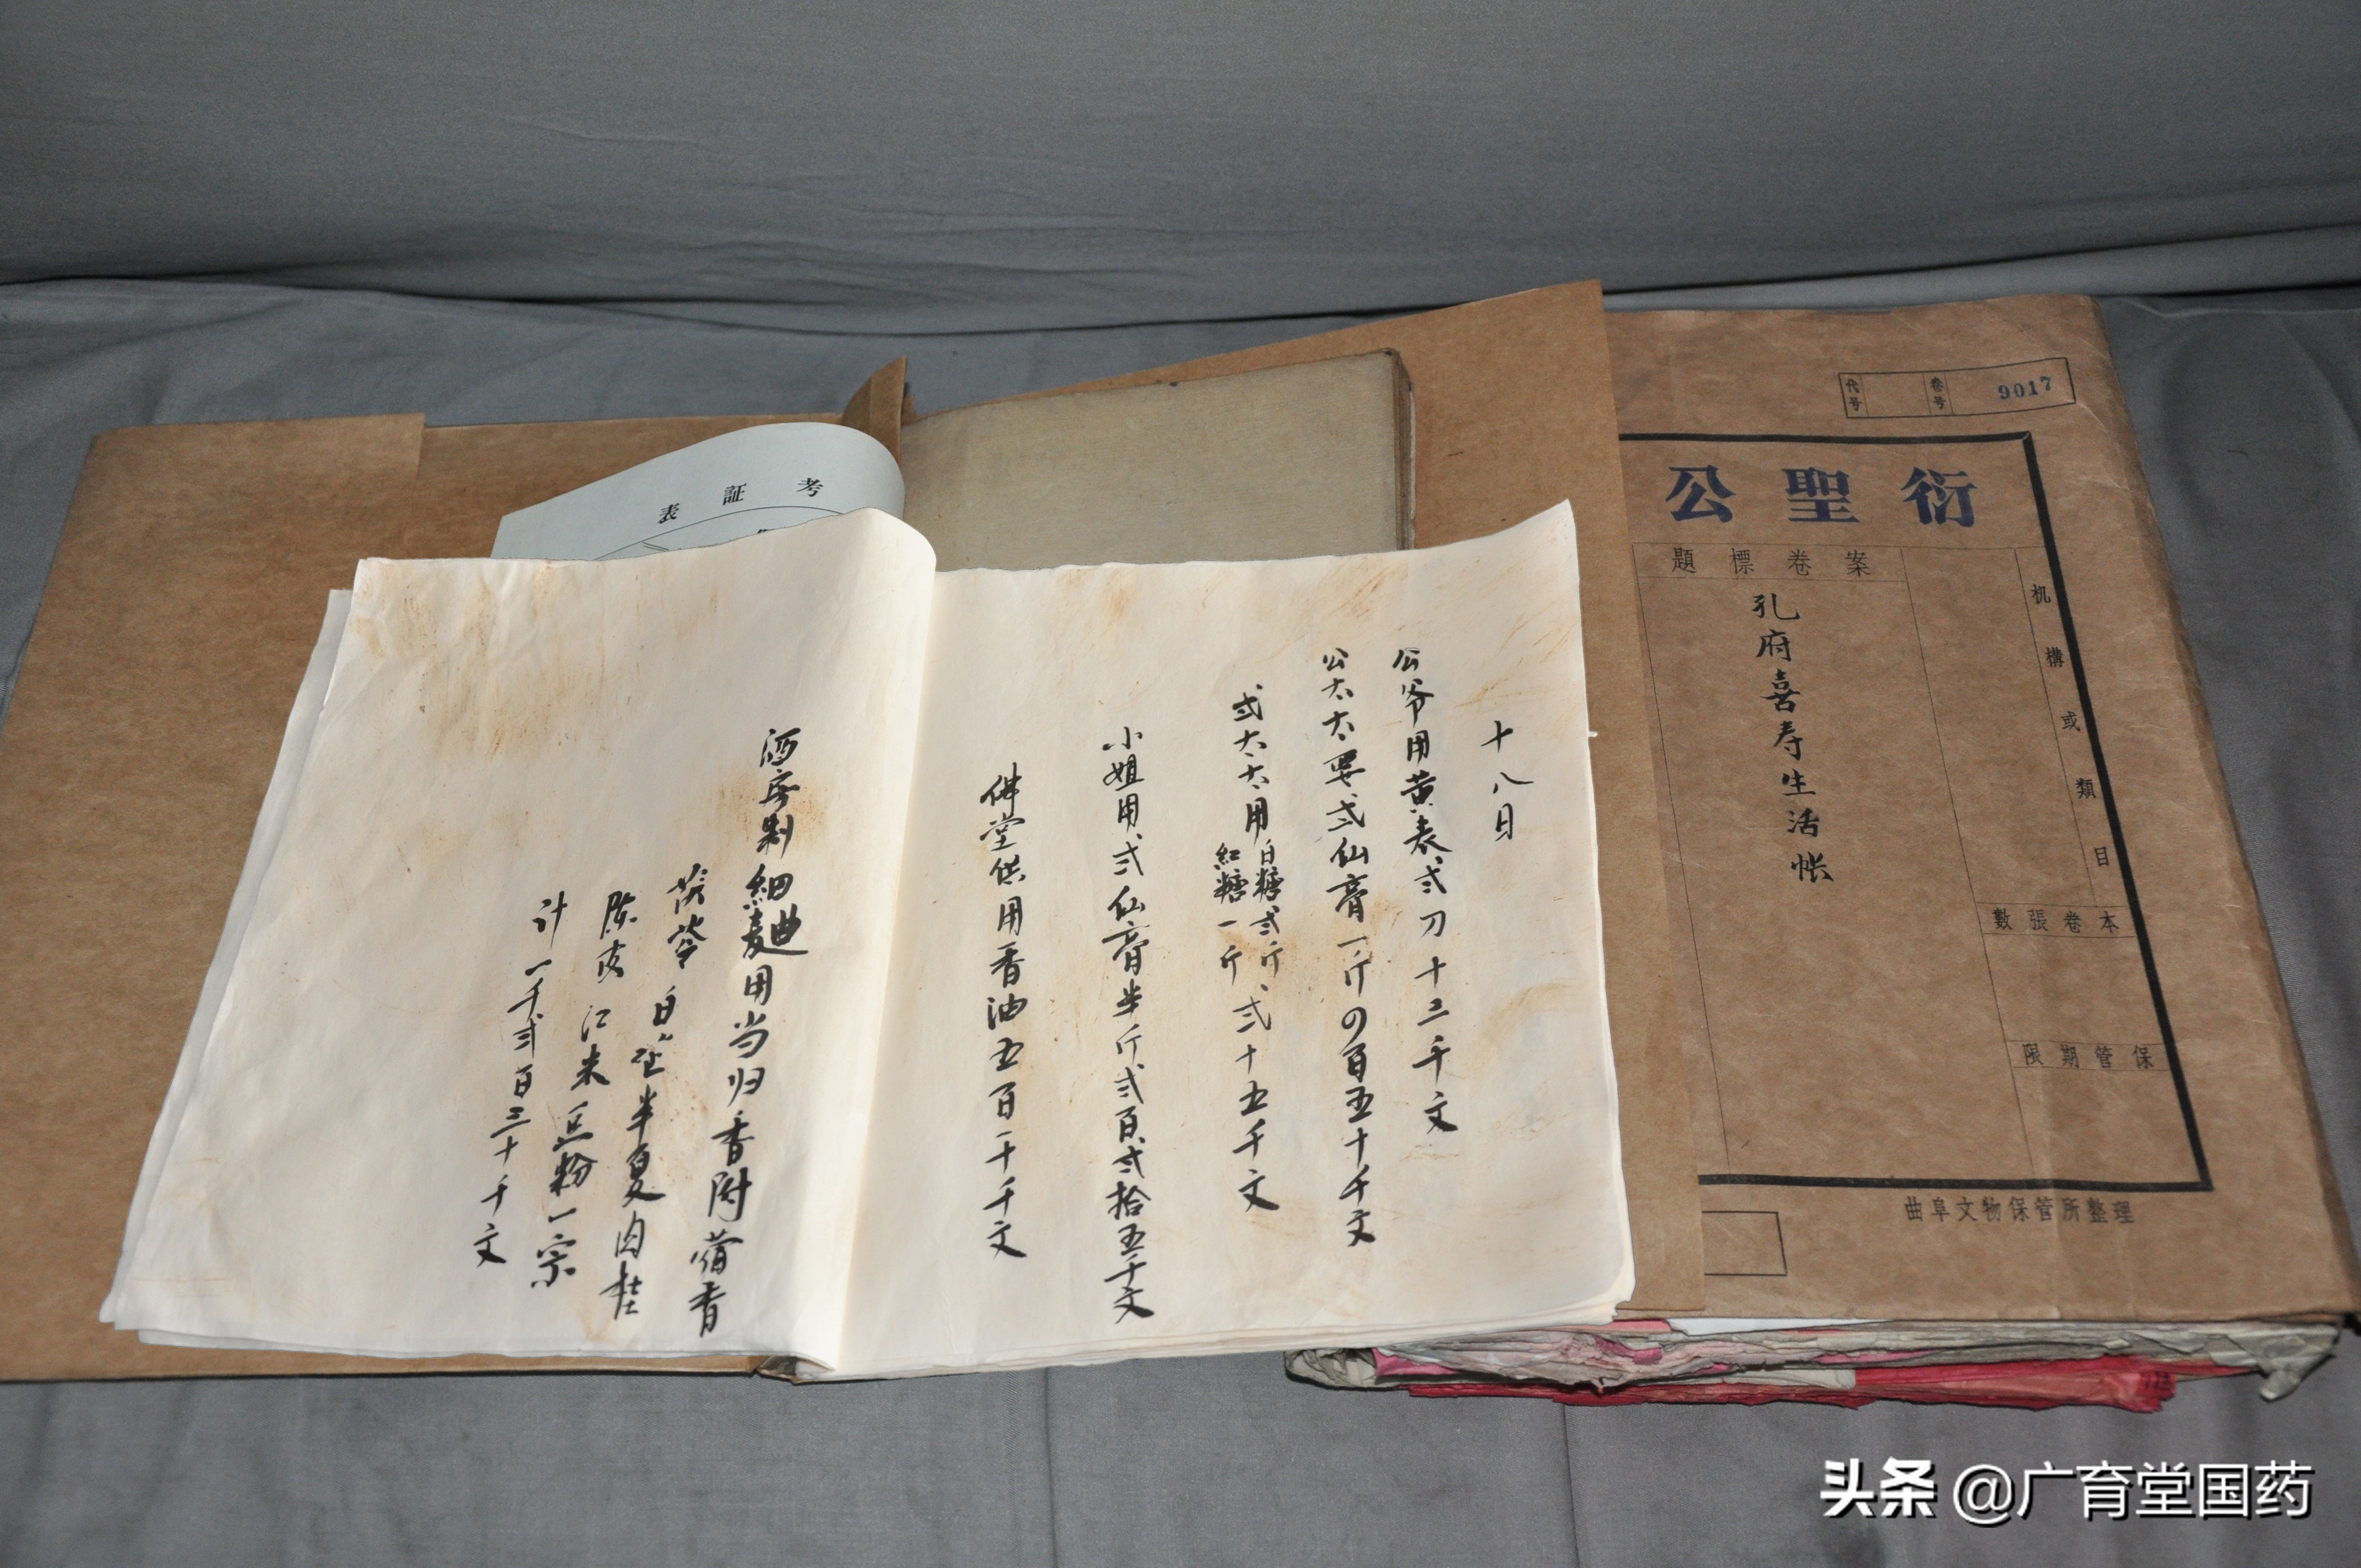 代号 卷号 9017
衍聖公
机構或類目
案卷標題
孔府喜寿生活帐
本卷張數
保管期限
曲阜文物保管所整理
考証表
十八日
公爷用黄表弍刀十三千文
公太太要弍仙膏一斤〇百五十千文
弍太太用白糖弍斤弍十五千文
紅糖一斤
小姐用弍仙膏半斤弍百弍拾五千文
佛堂供用香油五百一十千文
酒房制細麯用当归香附藿香
茯苓白芷半夏肉桂
陈皮江米豆粉一宗
计一千弍百三十千文
头条 @广育堂国药